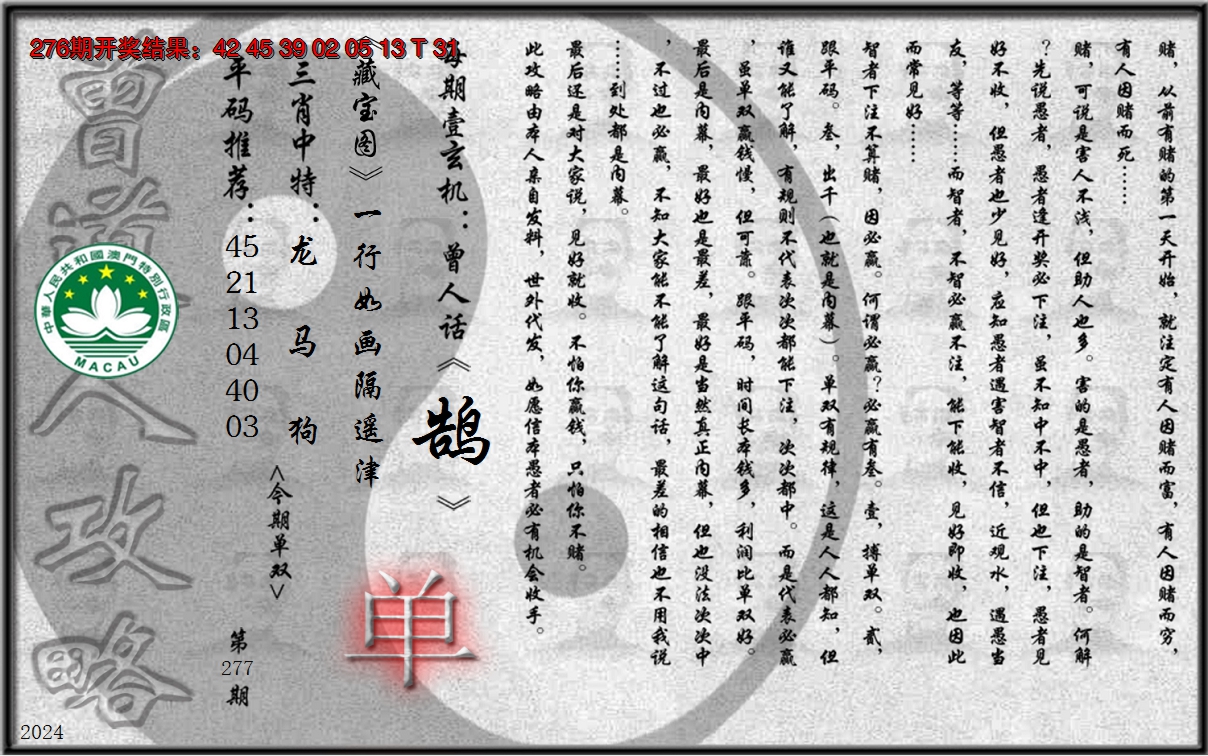 276期开奖结果：42 45 39 02 05 13 T 31
赌，从前有赌的第一天开始，就注定有人因赌而富，有人因赌而穷，
有人因赌而死……
赌，可说是害人不浅，但助人也多。害的是愚者，助的是智者。何解
？先说愚者，愚者逢开奖必下注，虽不知中不中，但也下注，愚者见
好不收，但愚者也少见好，应知愚者遇害智者不信，近观水，遇愚当
友，等等……而智者，不智必赢不注，能下能收，见好即收，也因此
而常见好……
智者下注不算赌，因必赢。何谓必赢？必赢有叁。壹，搏单双。贰，
跟平码。叁，出千（也就是内幕）。单双有规律，这是人人都知，但
谁又能了解，有规则不代表次次都能下注，次次都中。而是代表必赢
，虽单双赢钱慢，但可靠。跟平码，时间长本钱多，利润比单双好。
最后是内幕，最好也是最差，最好是当然真正内幕，但也没法次次中
，不过也必赢，不知大家能不能了解这句话，最差的相信也不用我说
……到处都是内幕。
最后还是对大家说，见好就收。不怕你赢钱，只怕你不赌。
此攻略由本人亲自发料，世外代发，如愿信本愚者必有机会收手。
每期壹玄机：曾人话《鹄》
《藏宝图》一行如画隔遥津
三肖中特：龙 马 狗
<今期单双>
单
平码推荐：45 21 13 04 40 03
第277期
曾道人攻略
中華人民共和國澳門特別行政區
MACAU
2024